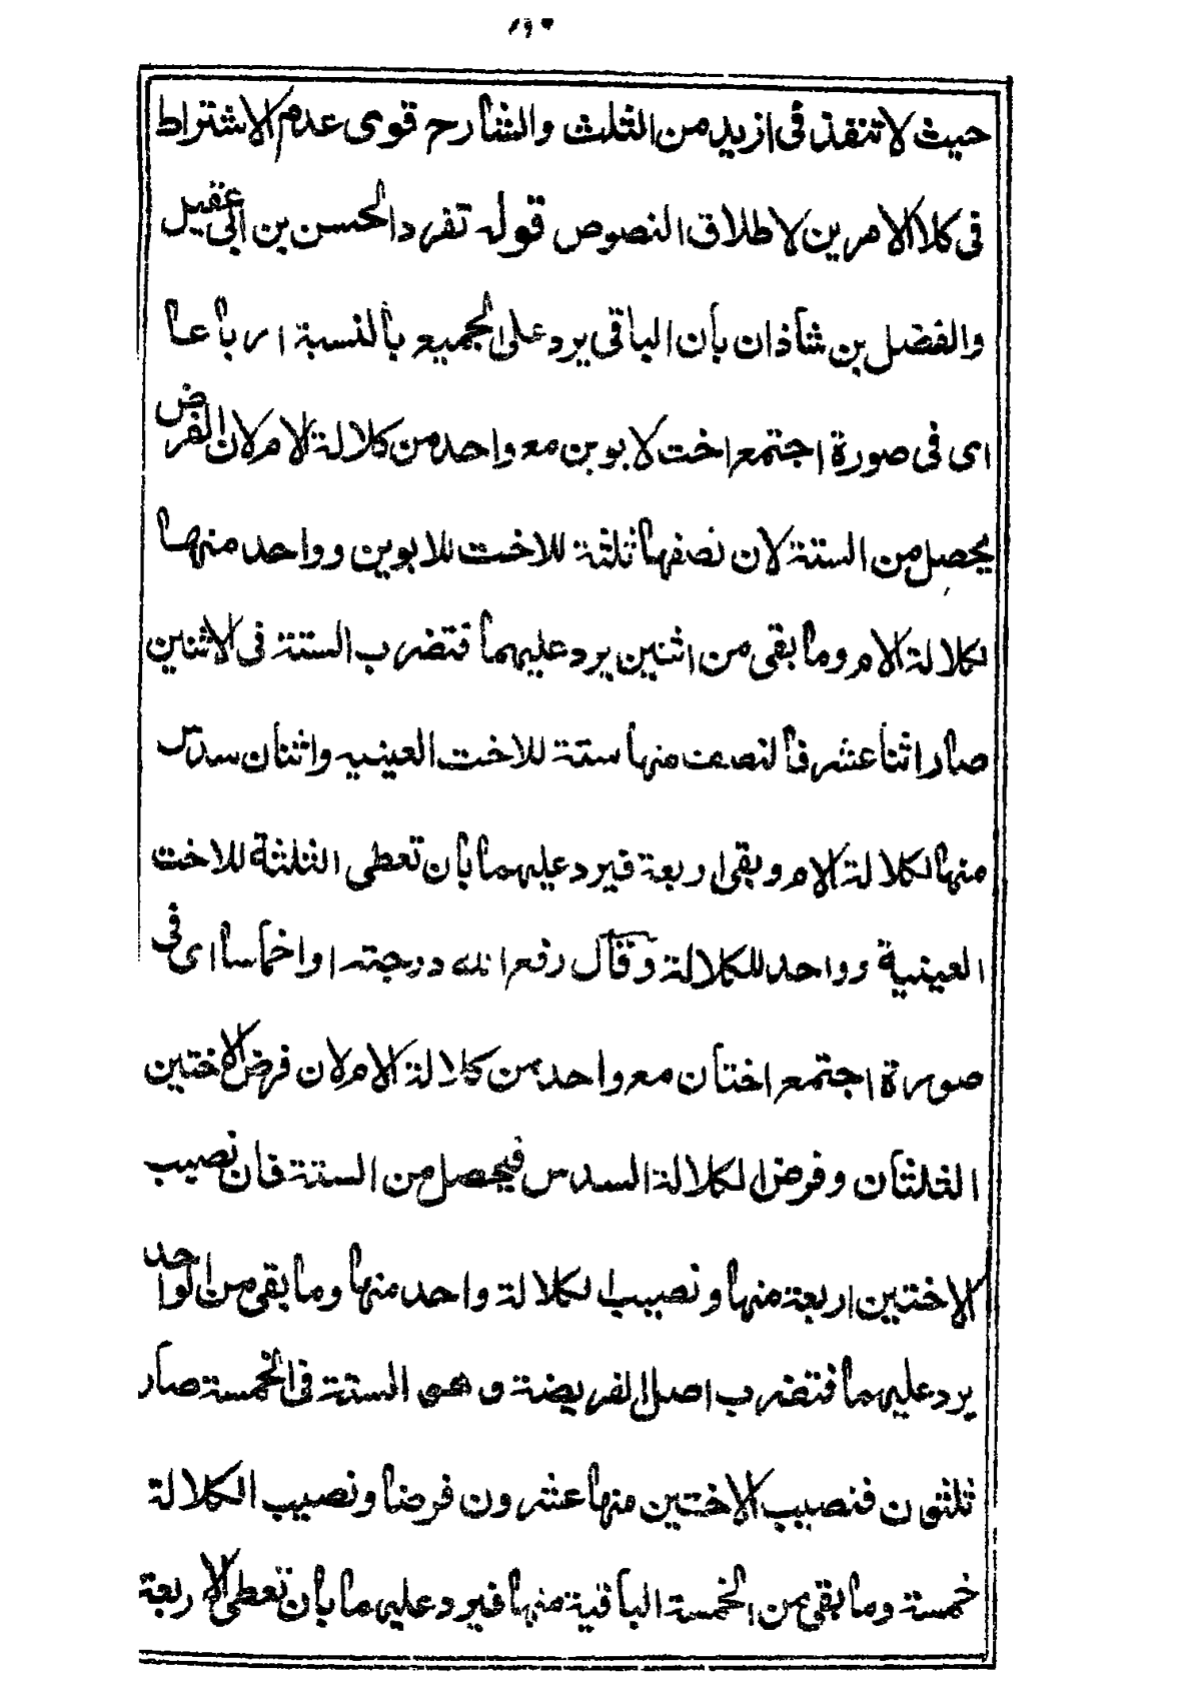 حيث لا تنفذ فى ازيد من الثلث والشارح قوى عدم الاشتراط
فى كلا الامرين لاطلاق النصوص قوله تفرد الحسن بن ابى عقيل
والفضل بن شاذان بان الباقى يرد على الجميع بالنسبة ارباعا
اى فى صورة اجتمع اخت لابوين مع واحد من كلالة الام لان الفرض
يحصل من الستة لان نصفها ثلثة للاخت للابوين وواحد منها
لكلالة الام وما بقى من اثنين يرد عليهما فتضرب الستة فى الاثنين
صار اثنا عشر فالنصف منها ستة للاخت العينيه واثنان سدس
منها لكلالة الام وبقى اربعة فيرد عليهما بان تعطى الثلثة للاخت
العينية وواحد للكلالة وقال رفع الله درجته او اخماسا اى فى
صورة اجتمع اختان مع واحد من كلالة الام لان فرض الاختين
الثلثان وفرض الكلالة السدس فيحصل من الستة فان نصيب
الاختين اربعة منها ونصيب الكلالة واحد منها وما بقى من الواحد
يرد عليهما فتضرب اصل الفريضة وهى الستة فى الخمسة صار
ثلثون فنصيب الاختين منها عشرون فرضا ونصيب الكلالة
خمسة وما بقى من الخمسة الباقية منها فيرد عليهما بان تعطى الاربعة